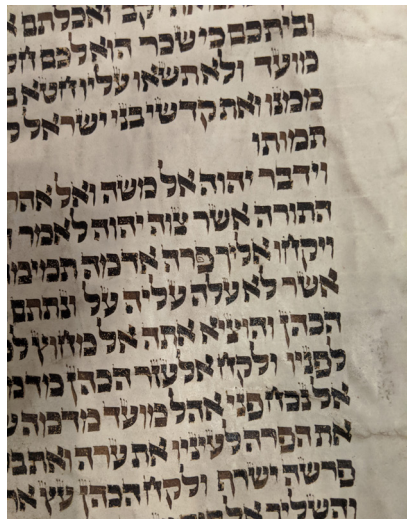 יקב ואכלתם
וביתכם כי שכר הוא לכם
מועד ולא תשאו עליו חטא
ממנו ואת קדשי בני ישראל
תמותו
וידבר יהוה אל משה ואל
התורה אשר צוה יהוה לאמר
ויקחו אליך פרה אדמה
אשר לא עלה עליה על ונתתם
הכהן והוציא אתה אל מחוץ
לפניו ולקח אלעזר הכהן
אל נכח פני אהל מועד מדמה
את הפרה לעיניו את ערה ואת
פרשה ישרף ולקח הכהן עץ
והשליך אל